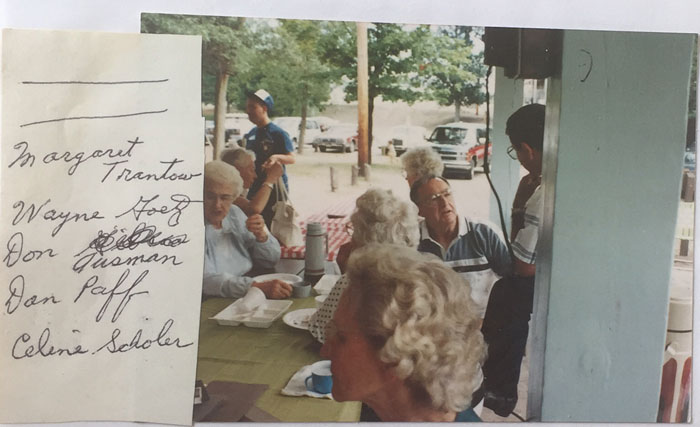 Margaret
Trantow
Wayne Goetz
Don
Gusman
Don Paff
Celine Scholer